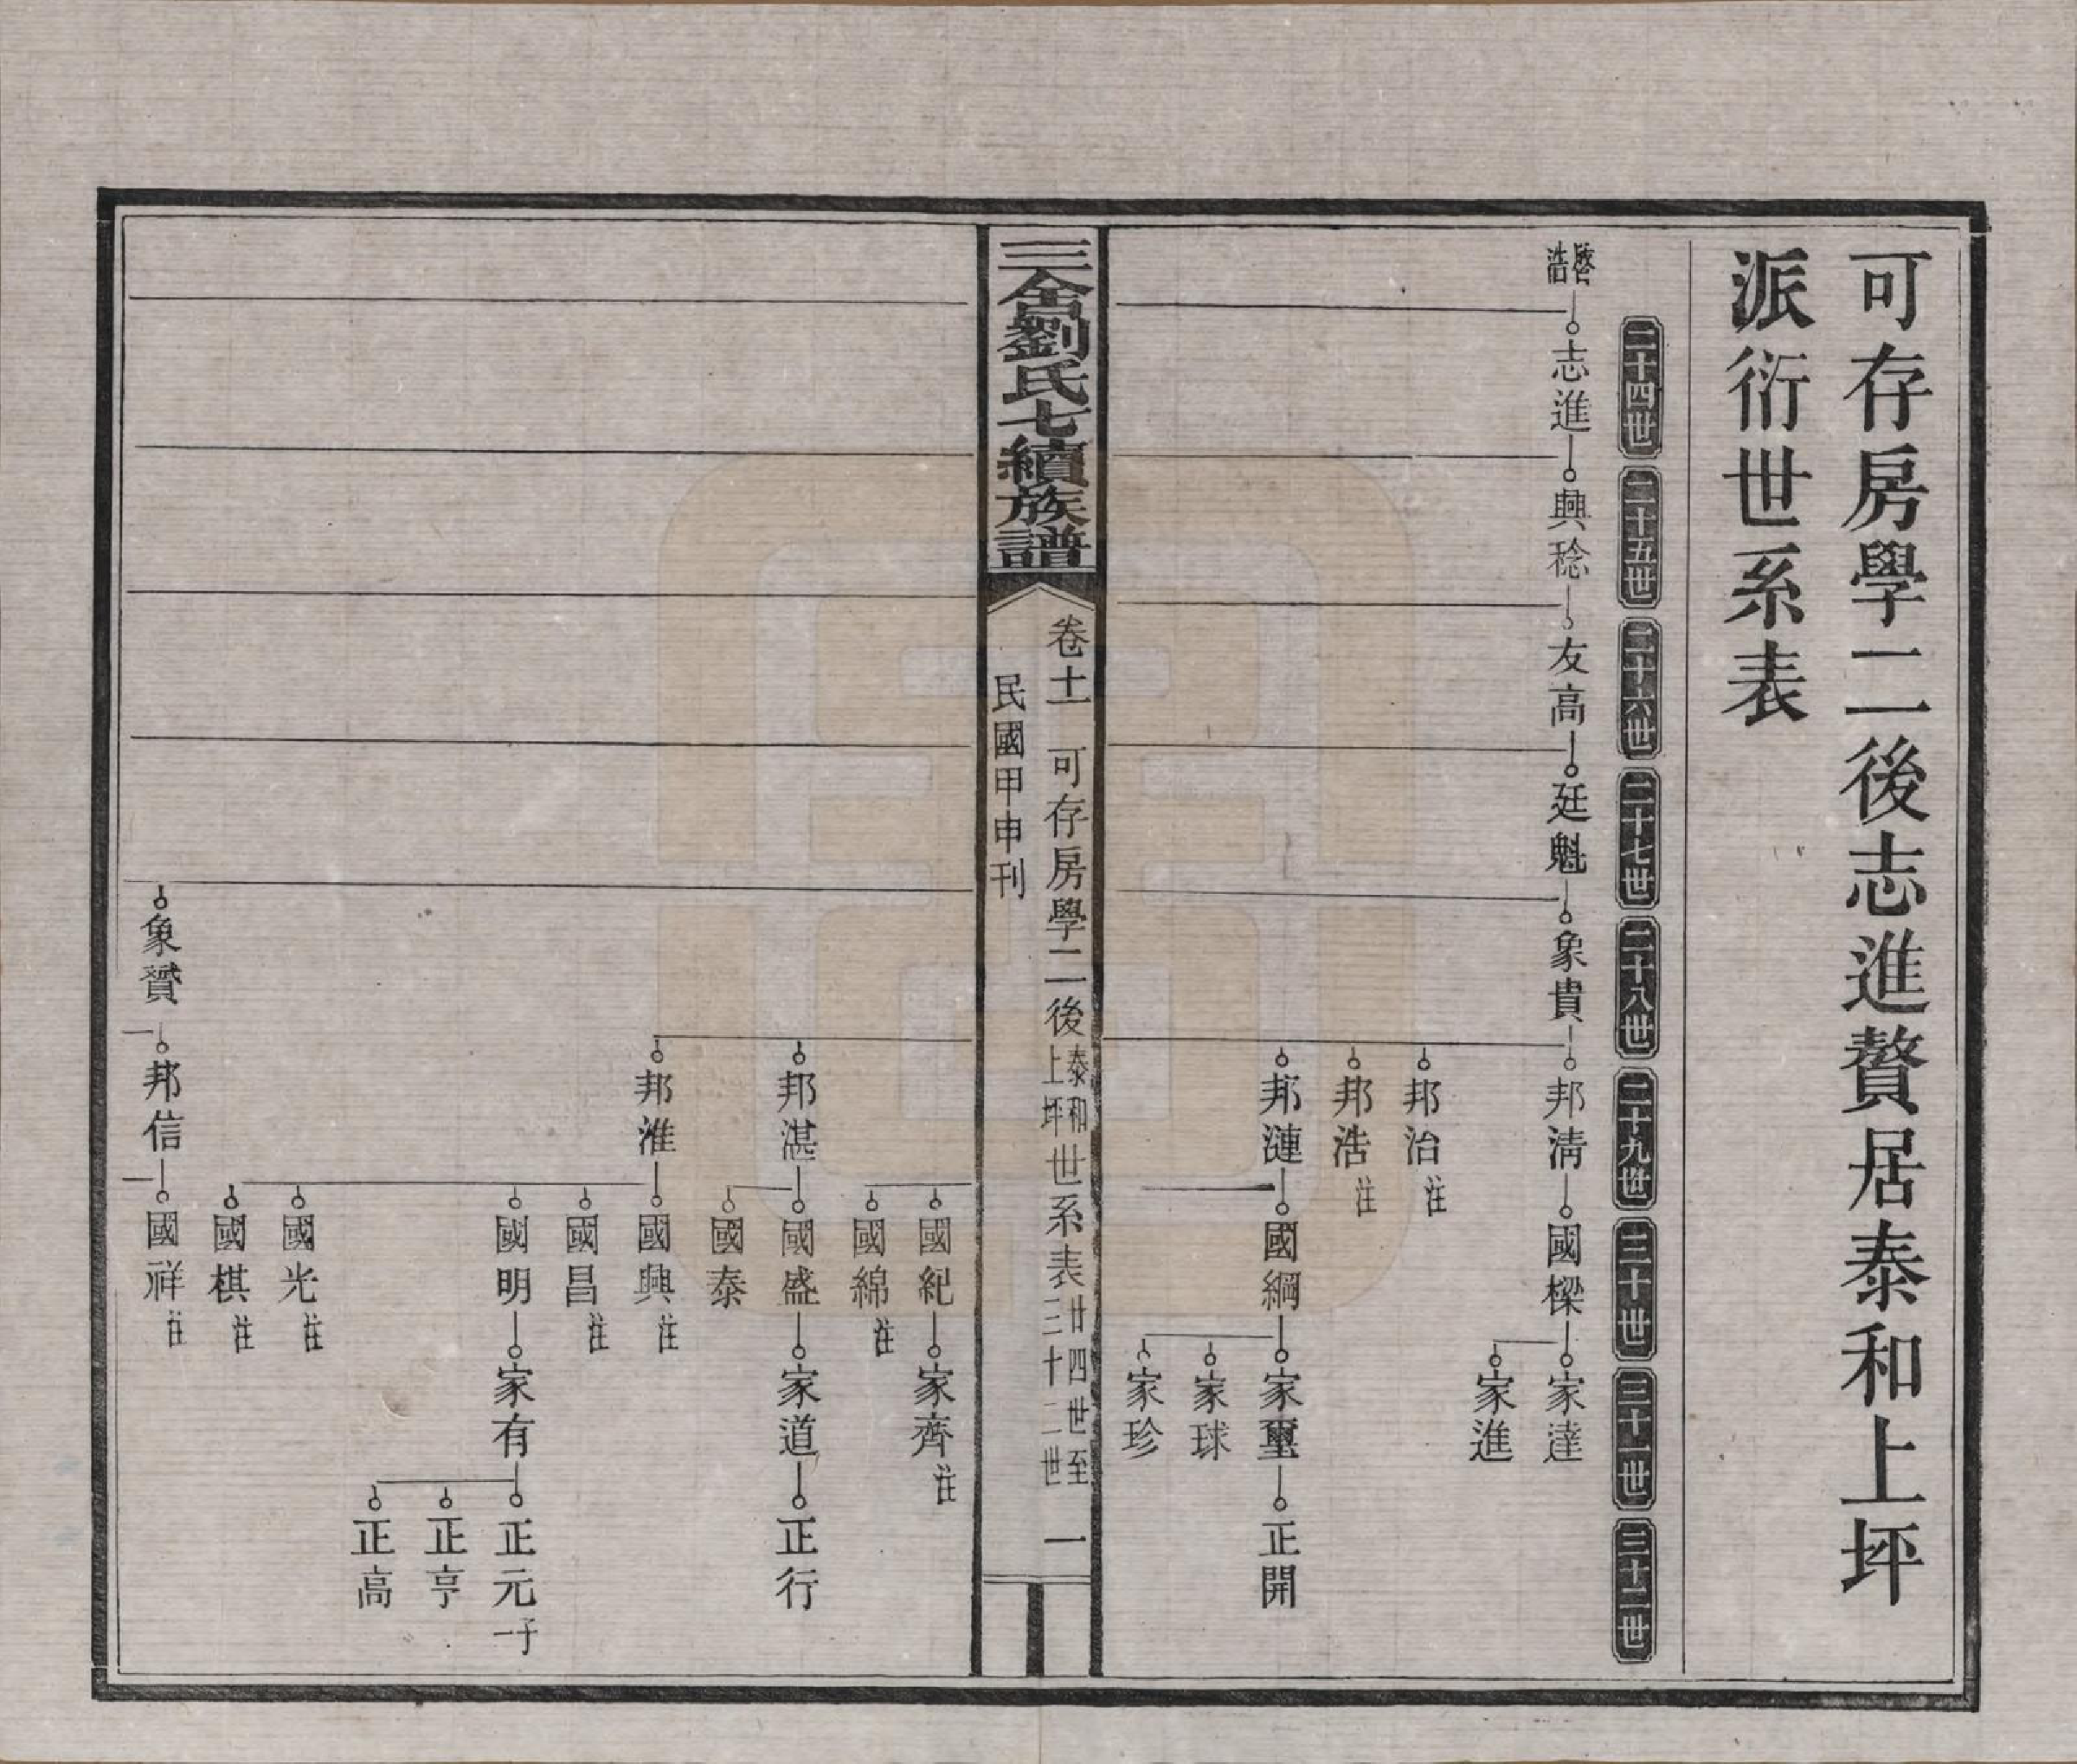 可存房學二後志進贅居泰和上坪
派衍世系表
二十四世
二十五世
二十六世
二十七世
二十八世
二十九世
三十世
三十一世
三十二世
啓浩
志進
興稔
友高
廷魁
象貴
邦淸
國樑
家達
家進
邦治 往
邦浩 往
邦漣
國綱
家璽
正開
家球
家珍
三舍劉氏七續族譜
卷十一 可存房學二後泰和上坪世系表廿四世至三十二世 一
民國甲申刊
國紀
家齊 往
國綿 往
邦湛
國盛
家道
正行
國泰
邦淮
國興 往
國昌 往
國明
家有
正元 一子
正亨
正高
國光 往
國棋 往
象贇
邦信
國祥 往